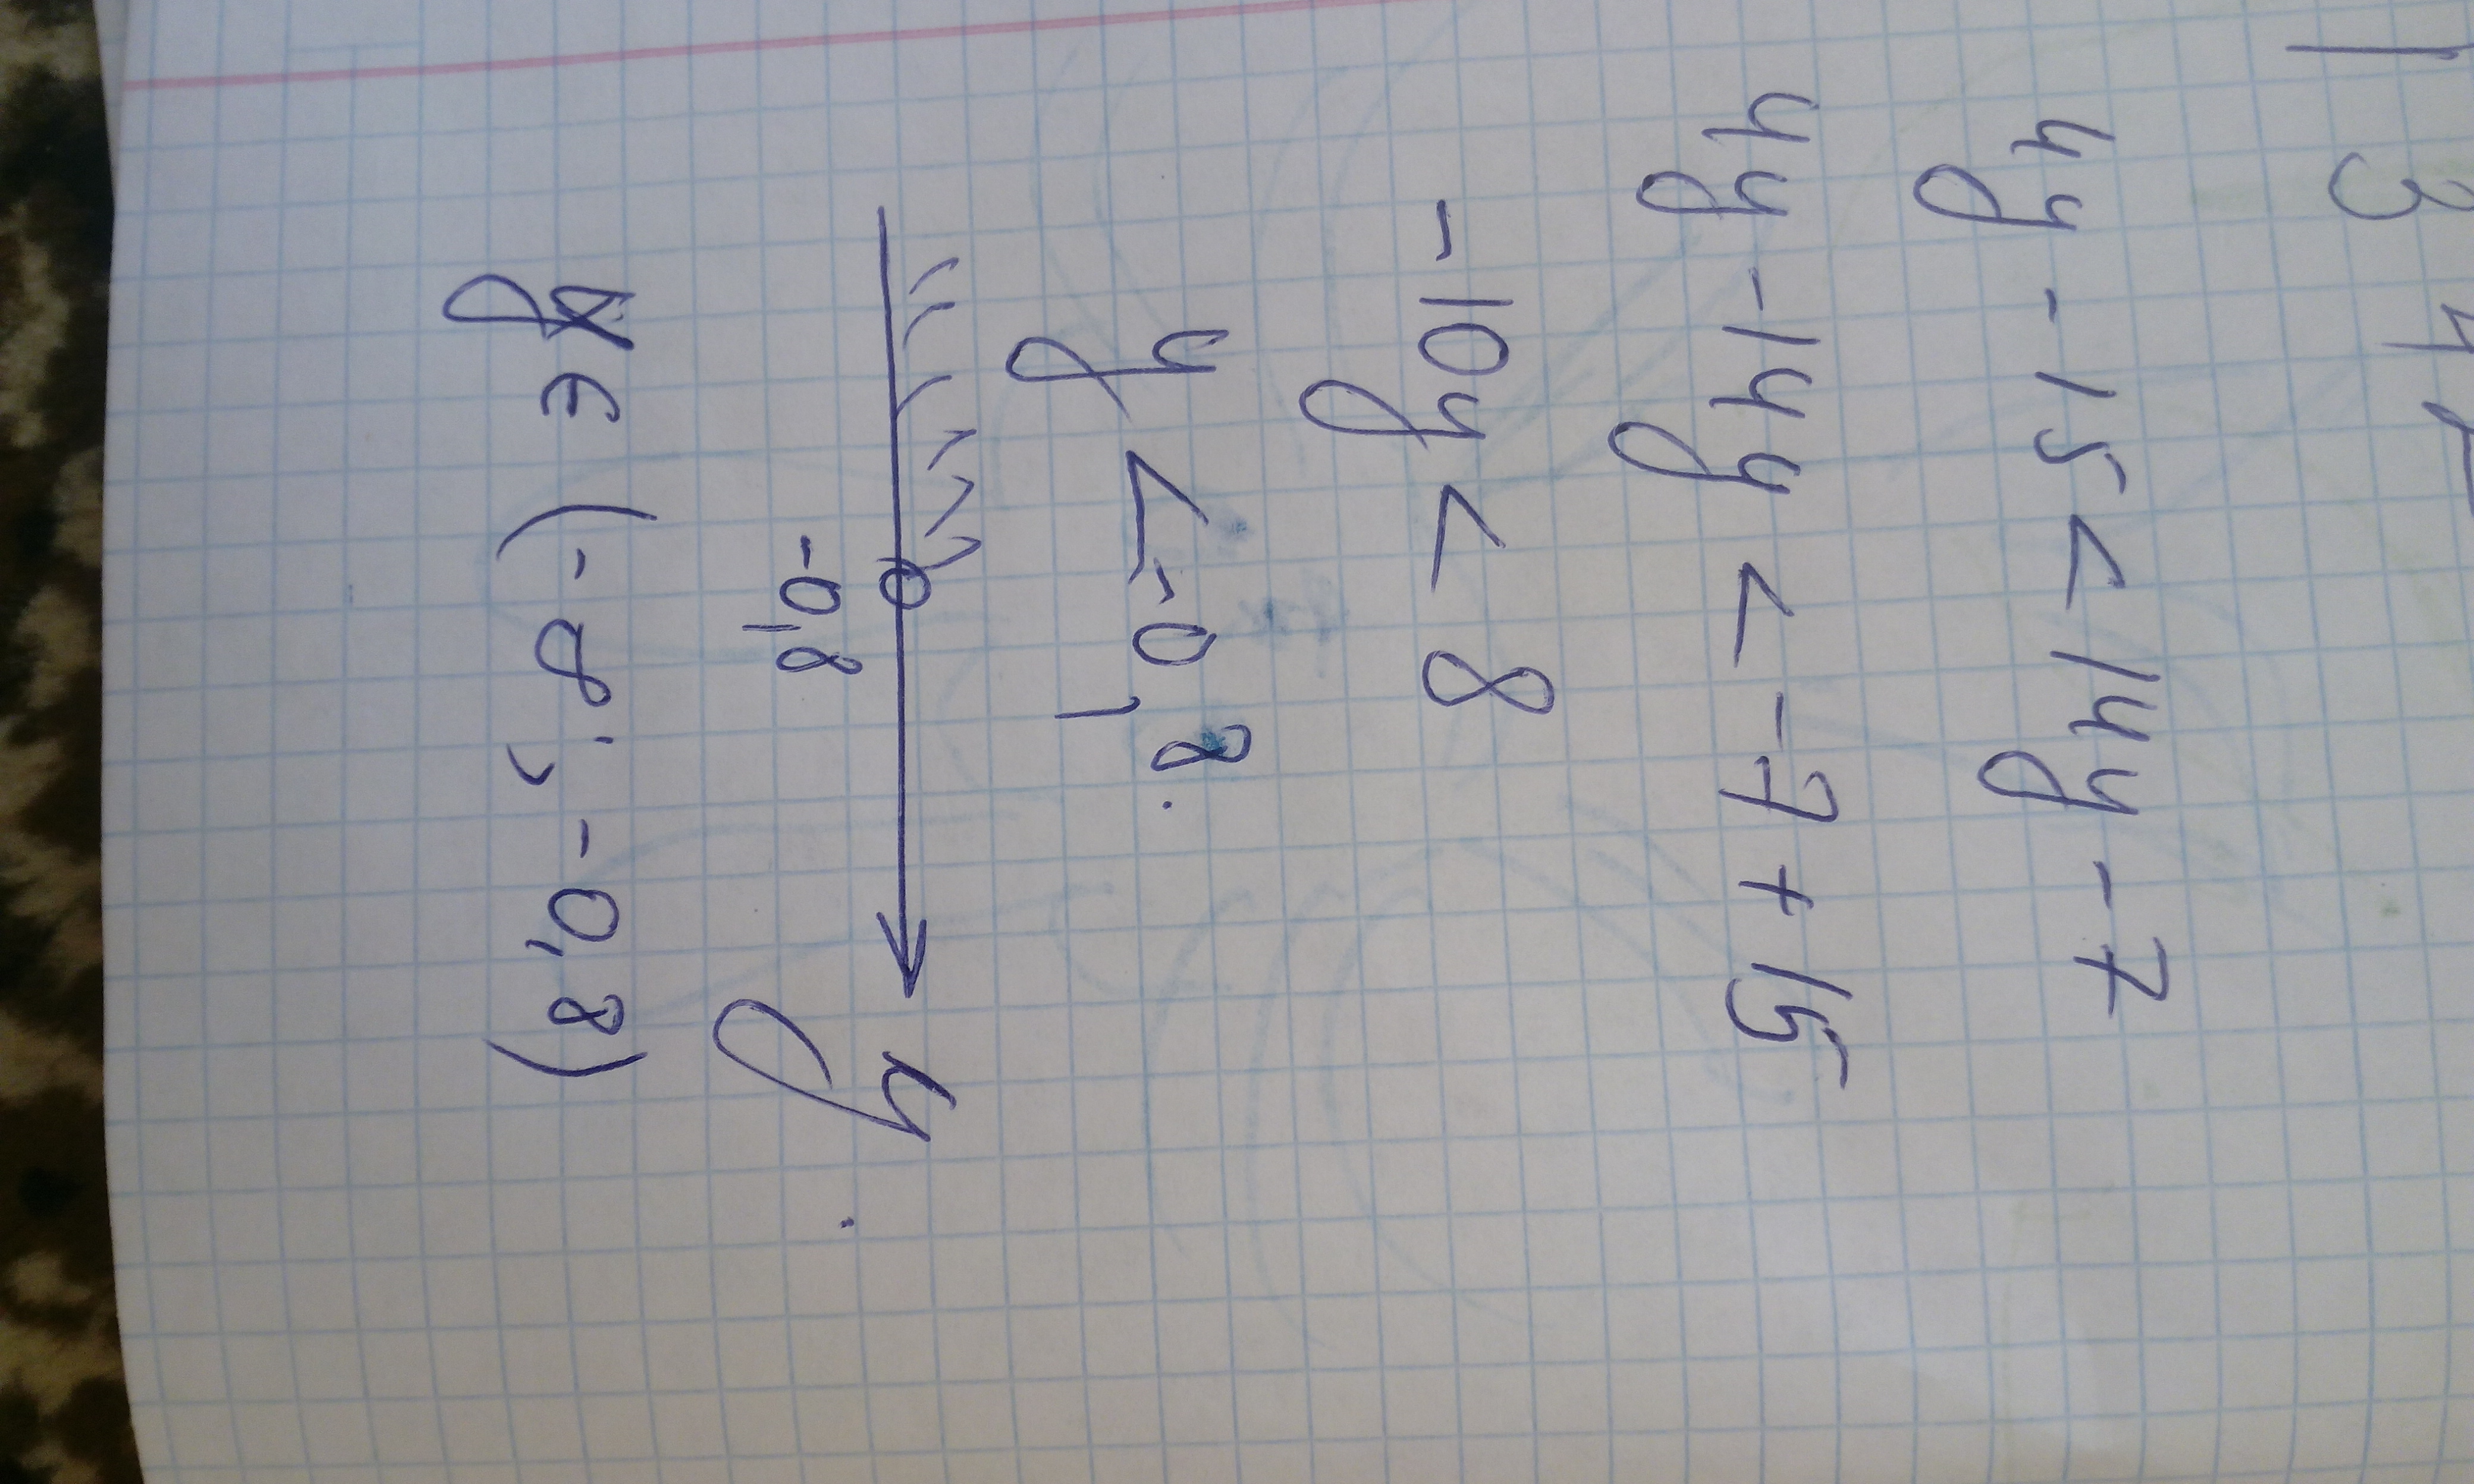 4y - 15 < 14y - 7
4y - 14y < -7 + 15
-10y < 8
y < -0,8.
-0,8
y
y ∈ (-∞; -0,8)